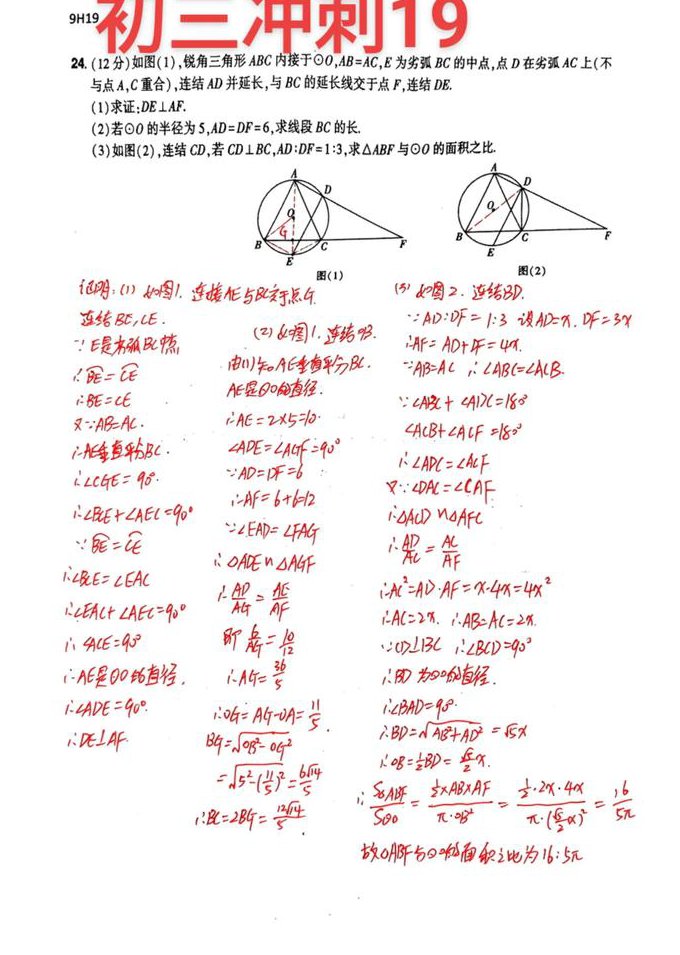 9H19
初三冲刺19
24.(12分)如图(1),锐角三角形ABC内接于⊙O,AB=AC,E为劣弧BC的中点,点D在劣弧AC上(不
与点A,C重合),连结AD并延长,与BC的延长线交于点F,连结DE.
(1)求证:DE⊥AF.
(2)若⊙O的半径为5,AD=DF=6,求线段BC的长.
(3)如图(2),连结CD,若CD⊥BC,AD:DF=1:3,求△ABF与⊙O的面积之比.
A
D
O
G
B
C
F
E
图(1)
A
D
O
B
C
F
E
图(2)
证明:(1)如图1.连接AE与BC交于点G.
连结BE,CE.
∵E是劣弧BC中点
∴BE=CE
∴BE=CE
又∵AB=AC.
∴AE垂直平分BC.
∴∠CGE=90°.
∴∠BCE+∠AEC=90°
∵BE=CE
∴∠BCE=∠EAC
∴∠EAC+∠AEC=90°
∴∠ACE=90°
∴AE是⊙O的直径.
∴∠ADE=90°.
∴DE⊥AF.
(2)如图1.连结OB.
由(1)知AE垂直平分BC.
AE是⊙O的直径.
∴AE=2×5=10.
∠ADE=∠AGF=90°
∵AD=DF=6
∴AF=6+6=12
∵∠EAD=∠FAG
∴△ADE∽△AGF
∴AD/AG=AE/AF
即6/AG=10/12
∴AG=36/5
∴OG=AG-OA=11/5.
BG=√OB²-OG²
=√5²-(11/5)²=6√14/5
∴BC=2BG=12√14/5.
(3)如图2.连结BD.
∵AD:DF=1:3 设AD=x.DF=3x
∴AF=AD+DF=4x.
∵AB=AC ∴∠ABC=∠ACB.
∵∠ABC+∠ADC=180°
∠ACB+∠ACF=180°
∴∠ADC=∠ACF
又∵∠DAC=∠CAF
∴△ACD∽△AFC
∴AD/AC=AC/AF
∴AC²=AD·AF=x·4x=4x²
∴AC=2x.∴AB=AC=2x.
∵CD⊥BC ∴∠BCD=90°
∴BD为⊙O的直径.
∴∠BAD=90°.
∴BD=√AB²+AD²=√5x
∴OB=½BD=√5/2x.
∴S△ABF/S⊙O=½×AB×AF/π·OB²=½·2x·4x/π·(√5/2x)²=16/5π
故△ABF与⊙O的面积之比为16:5π